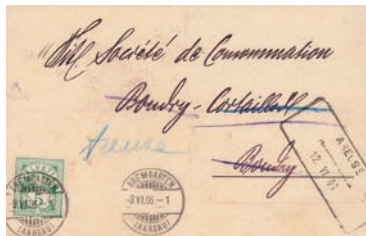 Tit. Société de Consommation
Boudry-Cortaillod
Boudry
BREMGARTEN
9.VI.06.-1
(AARGAU)
BREMGARTEN
-9.VI.06.-1
(AARGAU)